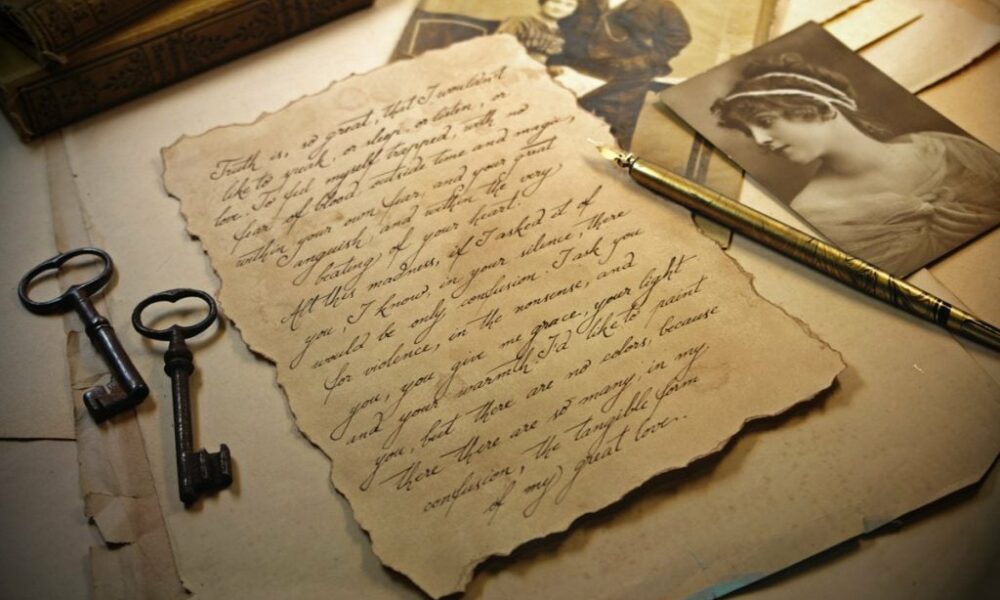 Truth is, so great, that I wouldn't
like to speak, or sleep, or listen, or
love. To feel myself trapped, with no
fear of blood, outside time and magic,
within your own fear, and your great
anguish, and within the very
beating, of your heart.
All this madness, if I asked it of
you, I know, in your silence, there
would be only confusion. I ask you
for violence, in the nonsense, and
you, you give me grace, your light
and your warmth. I'd like to paint
you, but there are no colors, because
there there are so many, in my
confusion, the tangible form
of my great love.